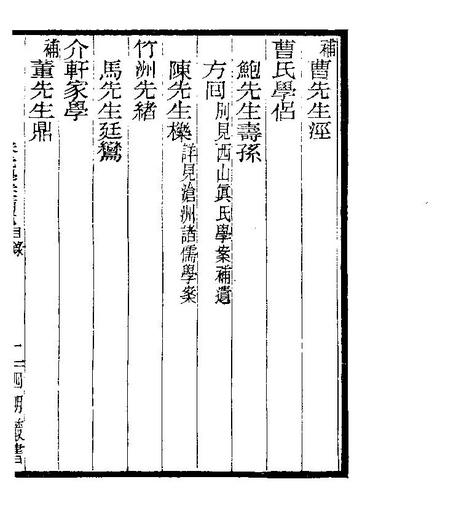 補曹先生涇
曹氏學侶
鮑先生壽孫
方回別見西山眞氏學案補遺
陳先生櫟詳見滄洲諸儒學案
竹洲先緒
馬先生廷鸞
介軒家學
補董先生鼎
目錄 二 四明叢書